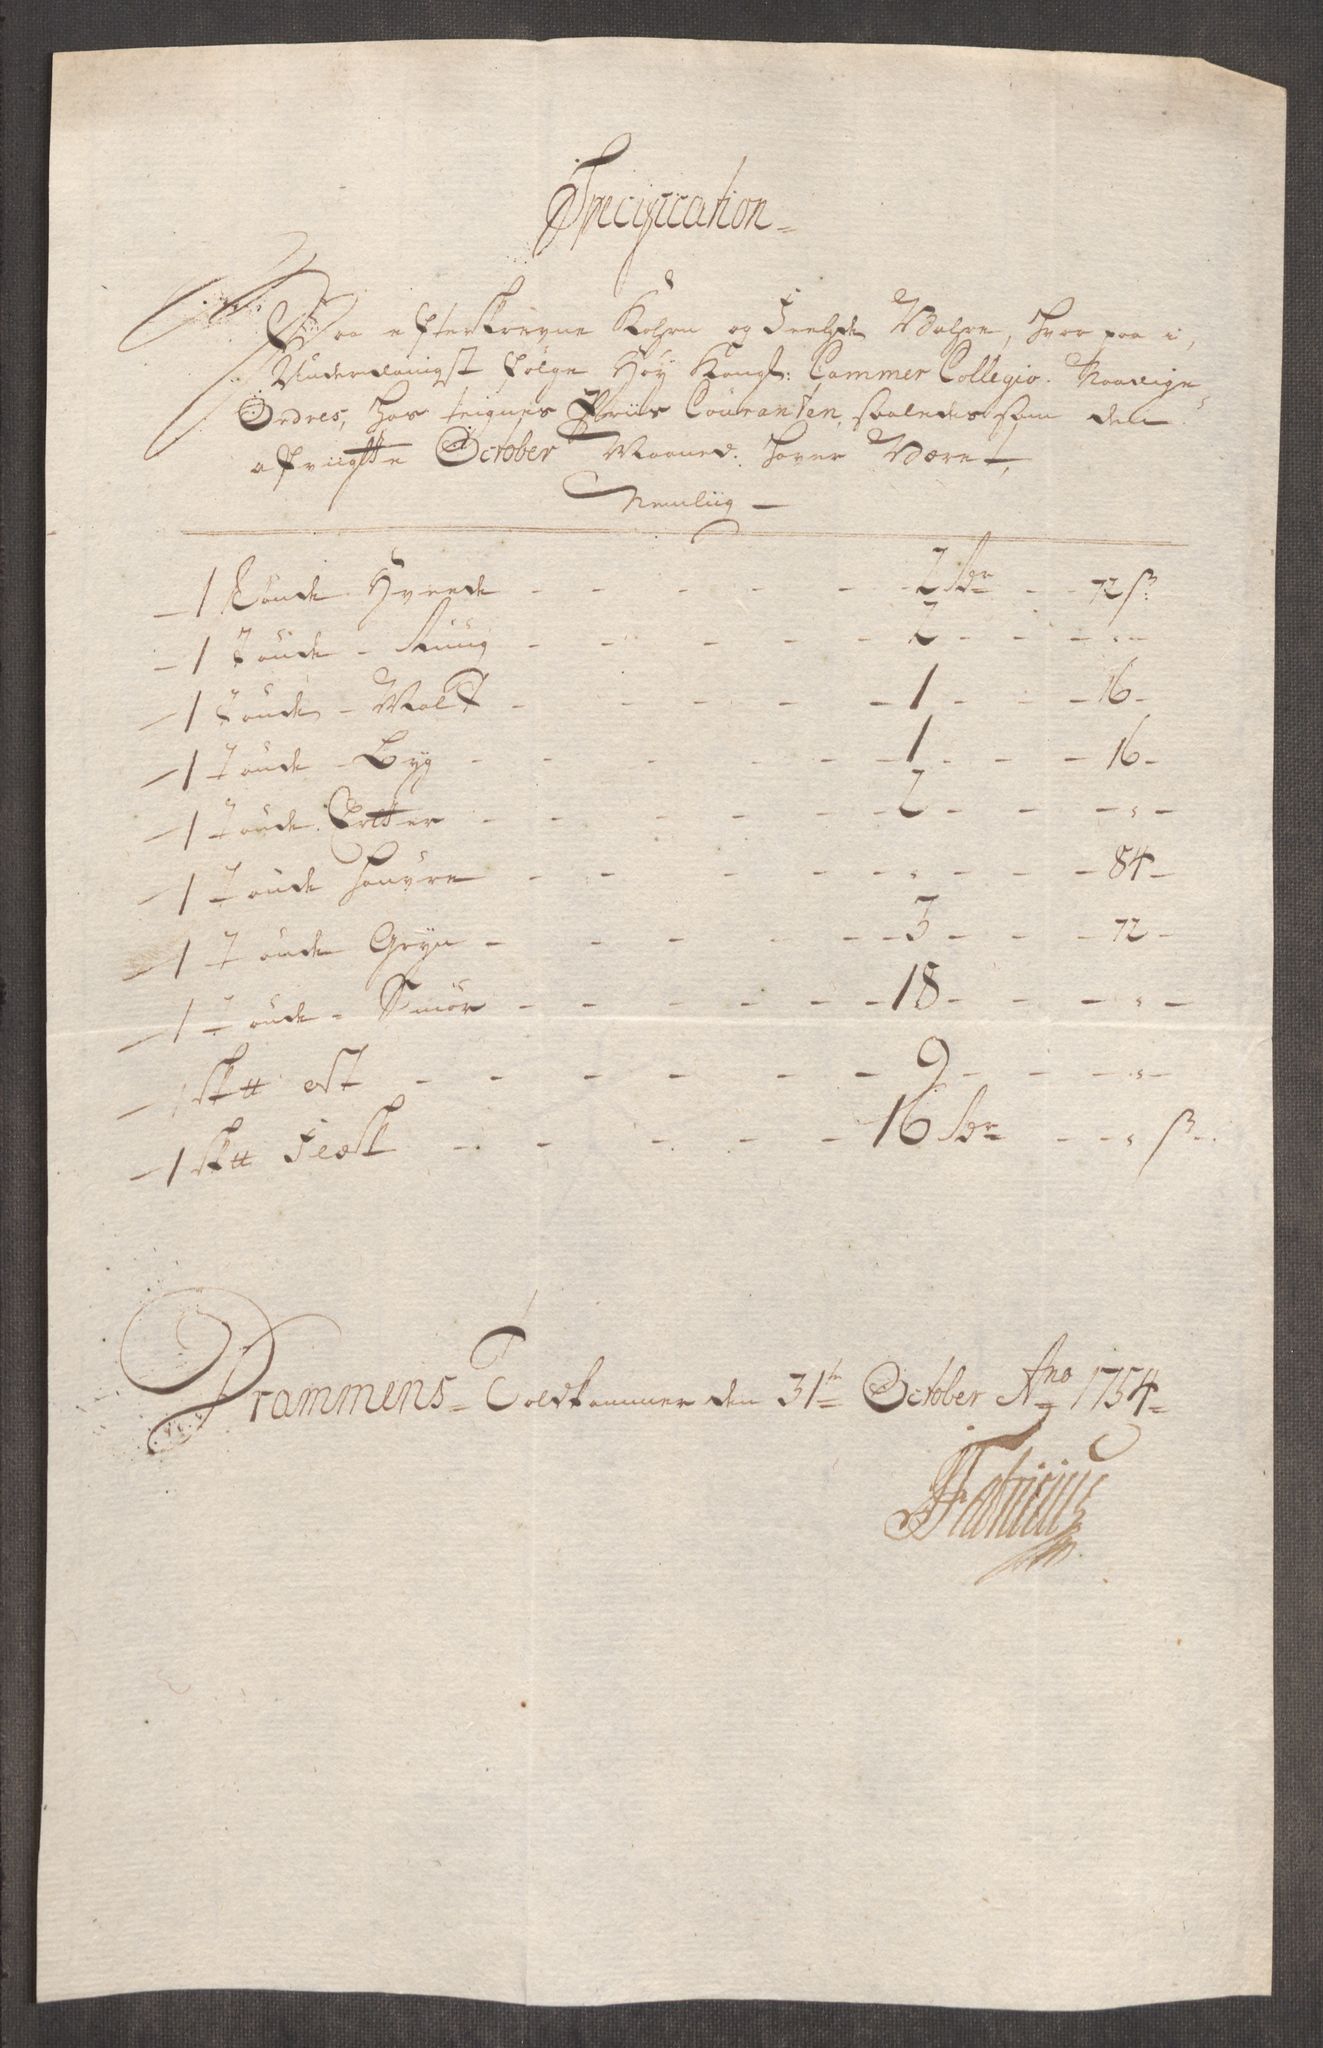 Specification
Paa efterskrevne Kohrn og Feede Vahre, hvor paa i,
Underdanigst følge Høy Kongl: Cammer Collegio Naadige
Ordres, hos teignes Priis Couranten, saaledes som den
afvigte October Maaned haver Være,
Nemlig
1 Tønde Hvede - - - 2 Rdr - 72 ß
1 Tønde - Rüug - - - 2 - - "
1 Tønde - Malt - - - 1 - - 16 -
1 Tønde - Byg - - - 1 - - 16 -
1 Tønde Erter - - - 2 - - " -
1 Tønde Hauvre - - - " - - 84 -
1 Tønde Gryn - - - 3 - - 72 -
1 Tønde - Smør - - - 18 - - " -
1 Sk℔ ost - - - 9 - - " -
1 Sk℔ Flesk - - - 16 Rdr - " ß
Drammens Toldkammer den 31te October Ano 1754
Fabricius